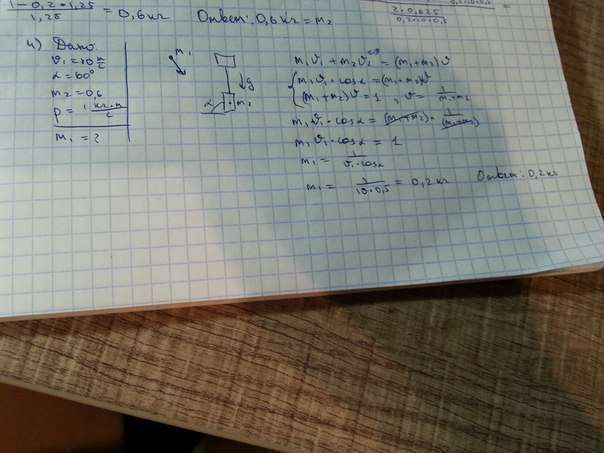 1 − 0,2 · 1,25 / 1,25 = 0,6 кг Ответ: 0,6 кг = m₂
4) Дано:
v₁ = 10 м/с
α = 60°
m₂ = 0,6
p = 1 кг·м/с
m₁ = ?
m₁
α
m₂
m₁v₁ + m₂v₂ = (m₁+m₂)v
m₁v₁ · cosα = (m₁+m₂)v
(m₁+m₂)v = 1 , v = 1/(m₁+m₂)
m₁v₁ · cosα = (m₁+m₂) · 1/(m₁+m₂)
m₁v₁ · cosα = 1
m₁ = 1/(v₁ · cosα)
m₁ = 1/(10 · 0,5) = 0,2 кг Ответ: 0,2 кг